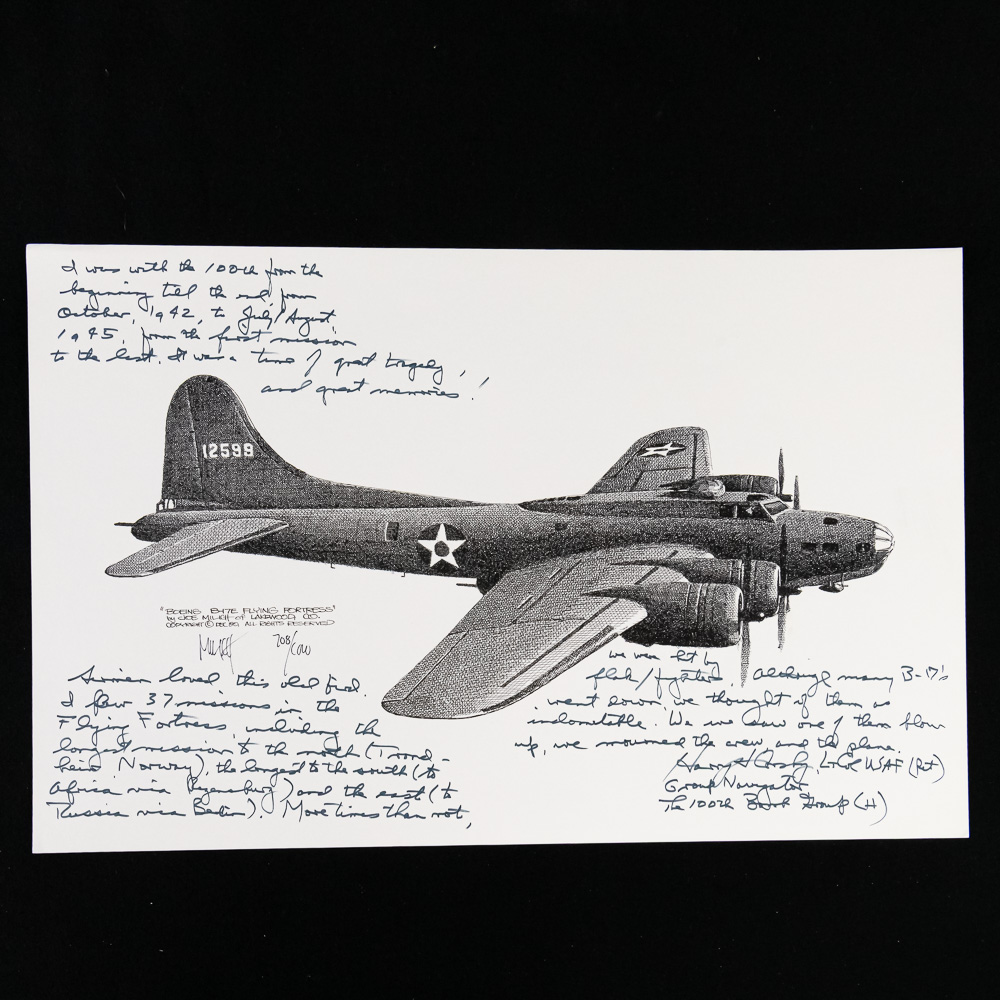 I was with the 100th from the
beginning till the end, from
October, 1942, to July/August
1945, from the first mission
to the last. It was a time of great tragedy,
and great memories!
12599
"BOEING B-17E FLYING FORTRESS"
by JOE MILICH of LAKEWOOD, CO.
COPYRIGHT © ALL RIGHTS RESERVED
708/
Airmen loved this old bird.
I flew 37 missions in the
Flying Fortress, including the
longest mission to the north (Trond-
heim Norway), the longest to the south (to
Africa via Regensburg) and the east (to
Russia via Berlin). More times than not,
we were hit by
flak/fighters. Although many B-17's
went down, we thought of them as
indomitable. We saw one of them blow
up, we mourned the crew and the plane.
Harry H Crosby, LtCol USAF (Ret)
Group Navigator
The 100th Bomb Group (H)